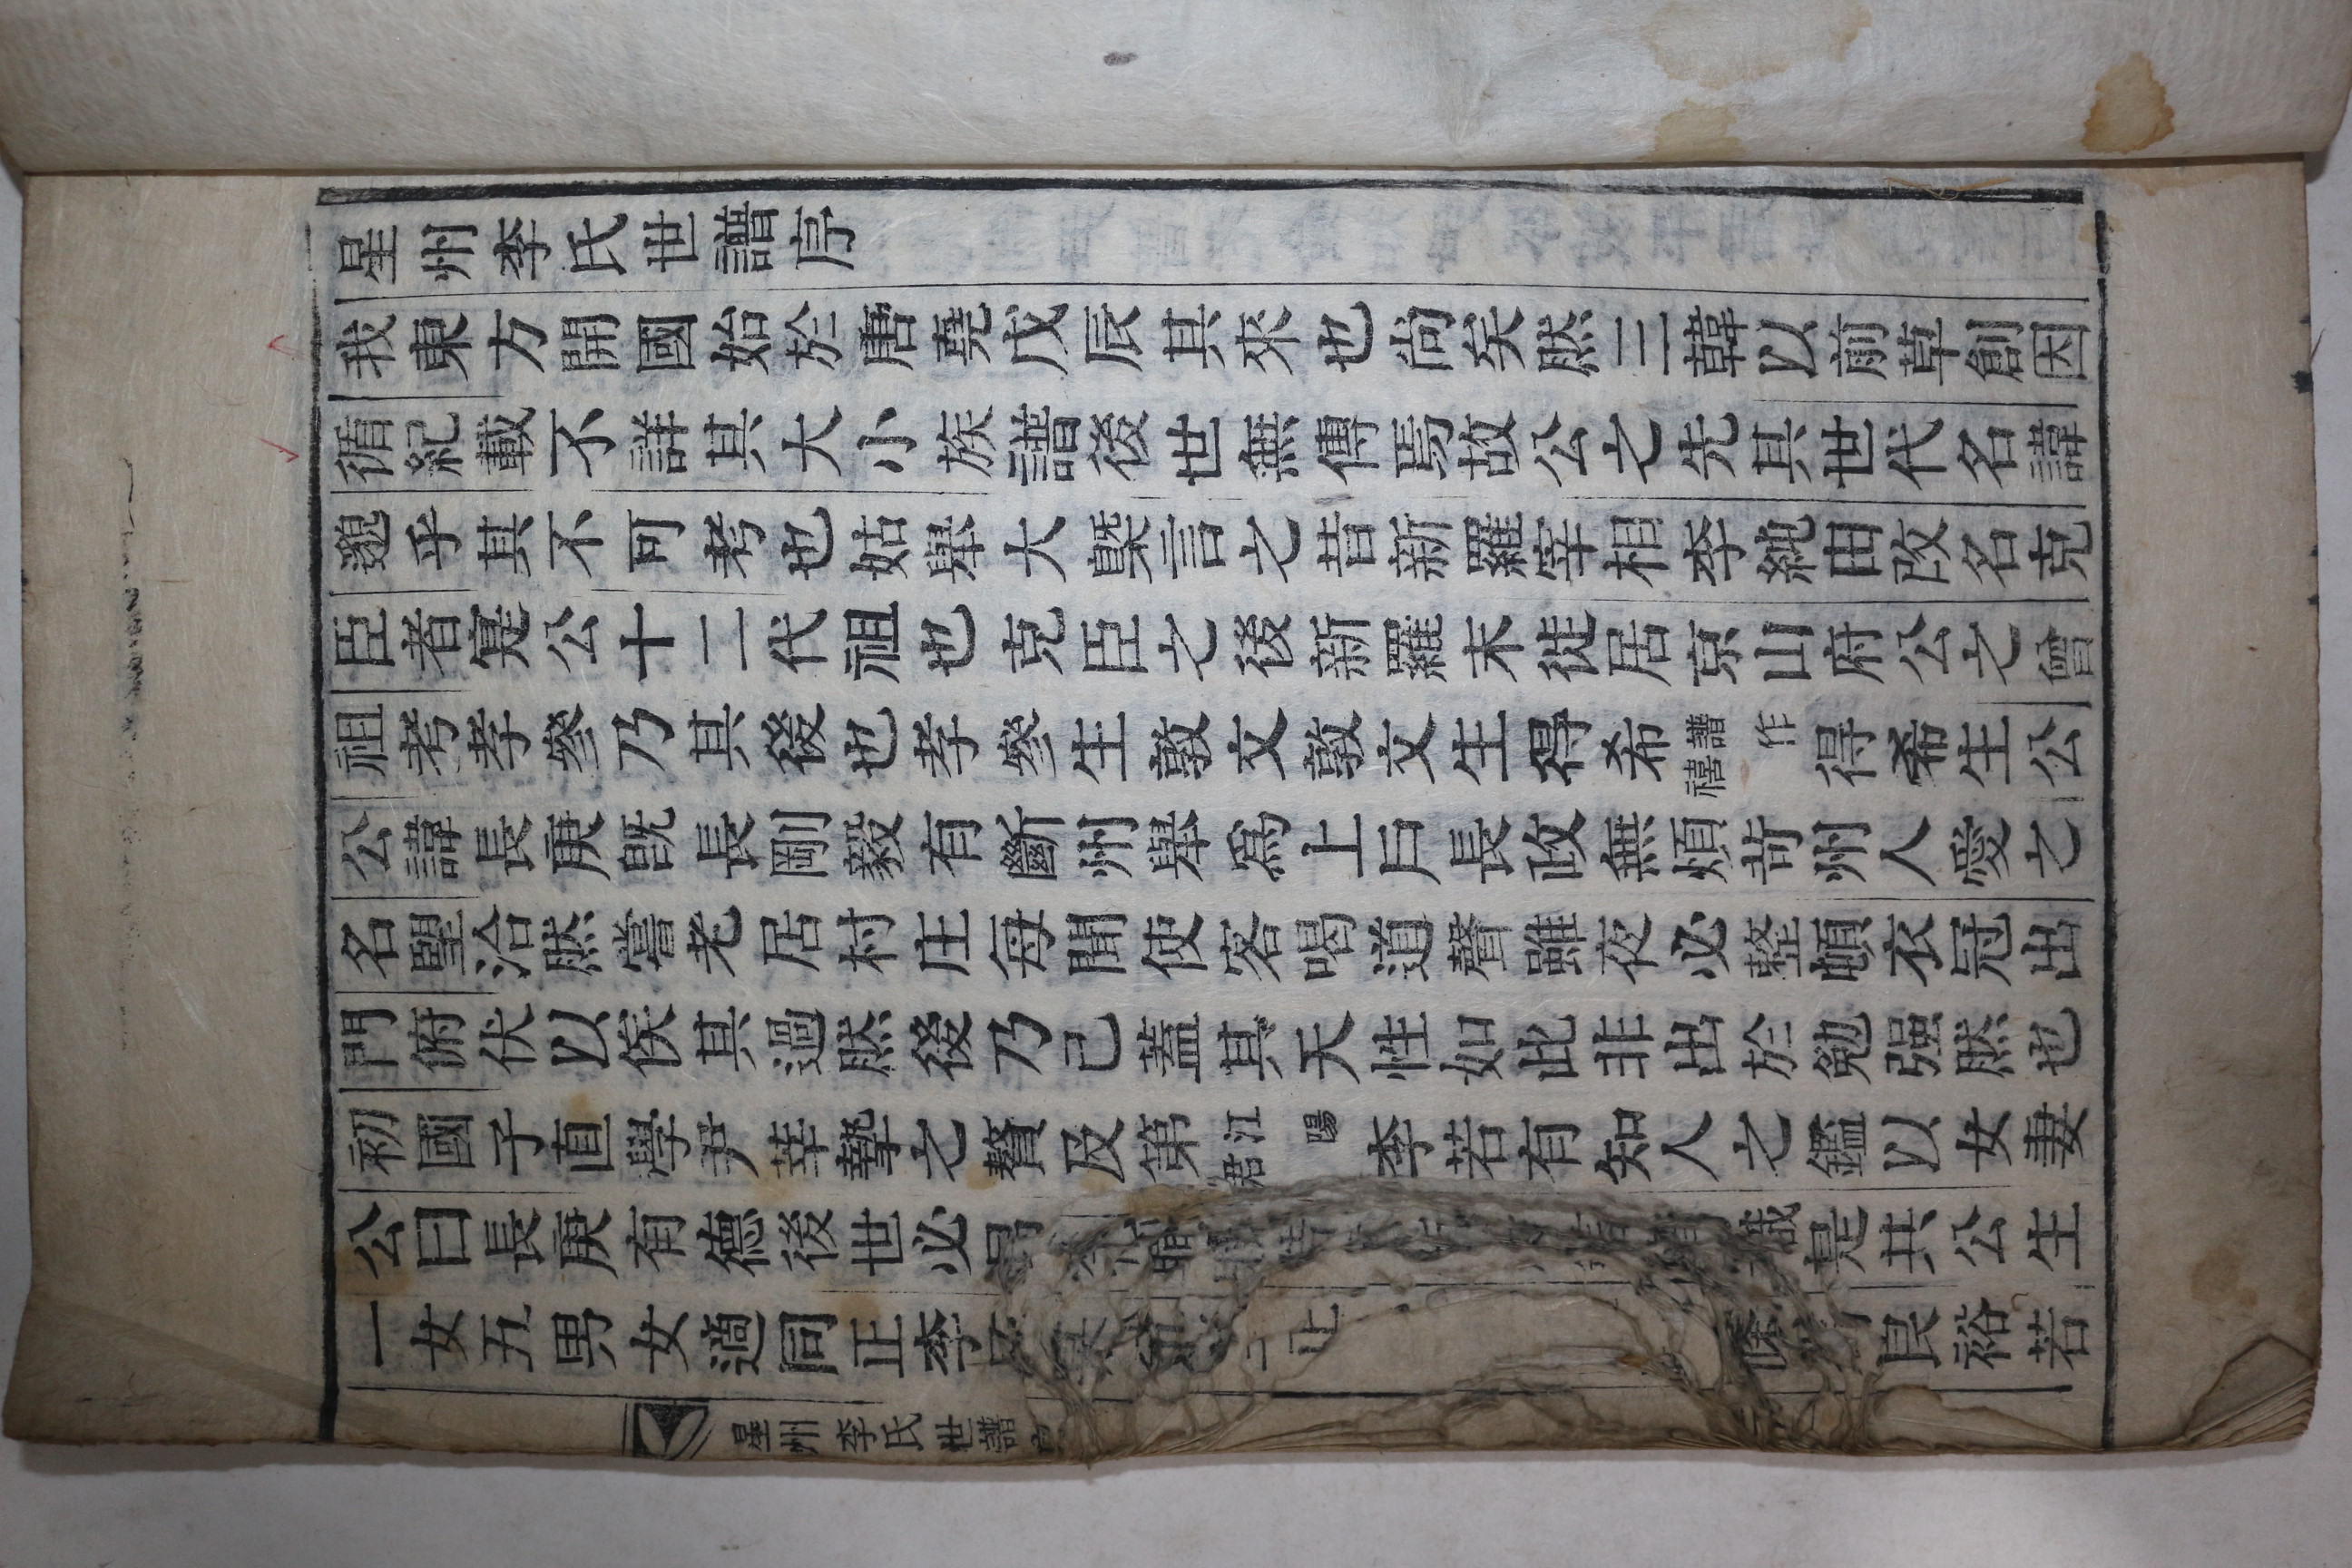 星州李氏世譜序
我東方開國始於唐堯戊辰其來也尙矣然三韓以前草創因
循紀載不詳其大小族譜後世無傳焉故公之先其世代名諱
邈乎其不可考也姑擧大槩言之昔新羅宰相李純由改名克
臣者寔公十二代祖也克臣之後新羅末徙居京山府公之曾
祖考孝叅乃其後也孝叅生敦文敦文生得希譜作禧得希生公
公諱長庚旣長剛毅有斷州擧爲上戶長政無煩苛州人愛之
名望洽然嘗老居村庄每聞使客喝道聲雖夜必整頓衣冠出
門俯伏以俟其過然後乃已蓋其天性如此非出於勉强然也
初國子直學尹莘摯之贅及第江陽君李若有知人之鑑以女妻
公曰長庚有德後世必 是共公生
一女五男女適同正李 良裕若
星州李氏世譜